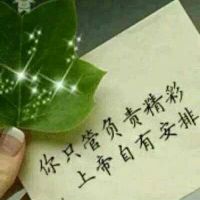 你只管负责精彩
上帝自有安排